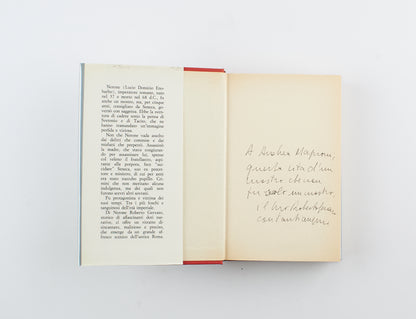 Nerone (Lucio Domizio Eno-
barbo), imperatore romano, nato
nel 37 e morto nel 68 d.C., fu
anche un mostro, ma, per cinque
anni, consigliato da Seneca, go-
vernò con saggezza. Ebbe la sven-
tura di cadere sotto la penna di
Svetonio e di Tacito, che ne
hanno tramandato un'immagine
perfida e viziosa.
Non che Nerone vada assolto
dai delitti che commise e dai
misfatti che perpetrò. Assassinò
la madre, che stava congiurando
per assassinare lui, spense
col veleno il fratellastro, aspi-
rante alla porpora, fece "sui-
cidare" Seneca, suo ex precet-
tore e ministro, di cui per anni
era stato zuccubo pupillo. Nemici
che non meritavano alcuna
indulgenza, ma dai quali non
furono severi altri sovrani.
Fu protagonista e vittima dei
suoi tempi. Tra i più foschi e
sanguinosi dell'età imperiale.
Di Nerone Roberto Gervaso,
storico di affascinanti doti nar-
rative, ci offre un ritratto di-
sincantato, malizioso e preciso,
che emerge da un grande af-
fresco storico dell'antica Roma.
A Andrea
questa vita d'un
mostro che non
fu solo un mostro,